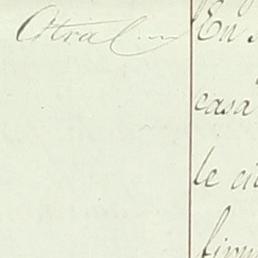 Otra
En
casa
le ci
firm